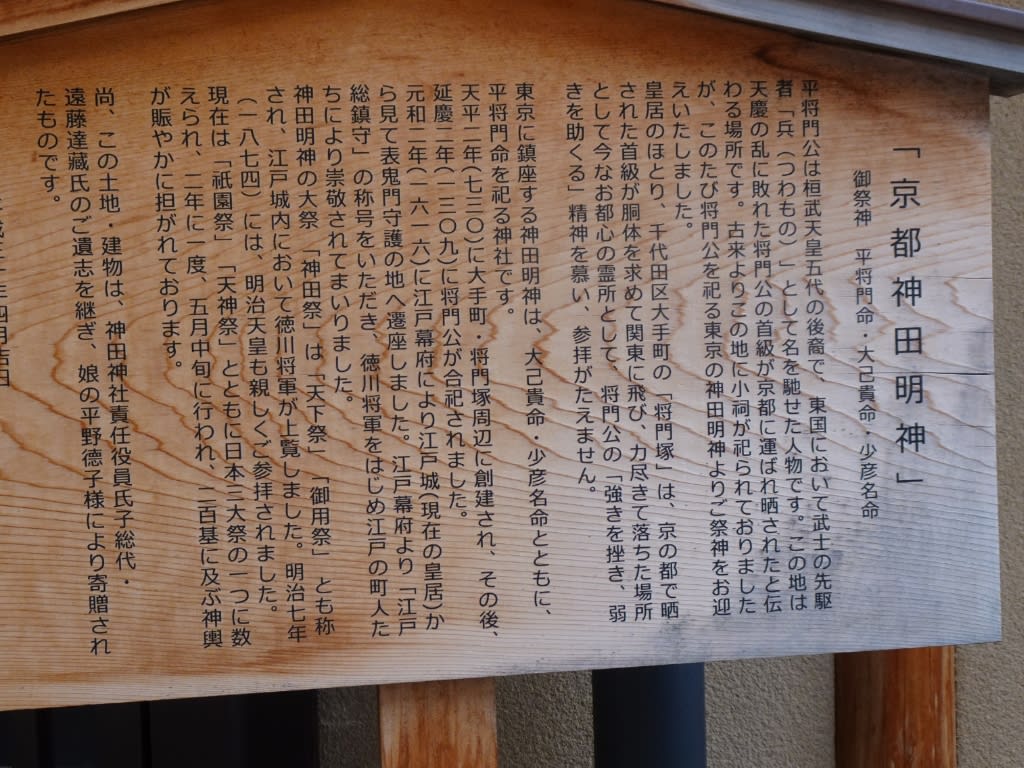 「京都神田明神」
御祭神　平将門命・大己貴命・少彦名命
平将門公は桓武天皇五代の後裔で、東国において武士の先駆
者「兵（つわもの）」として名を馳せた人物です。この地は
天慶の乱に敗れた将門公の首級が京都に運ばれ晒されたと伝
わる場所です。古来よりこの地に小祠が祀られておりました
が、このたび将門公を祀る東京の神田明神よりご祭神をお迎
えいたしました。
皇居のほとり、千代田区大手町の「将門塚」は、京の都で晒
された首級が胴体を求めて関東に飛び、力尽きて落ちた場所
として今なお都心の霊所として、将門公の「強きを挫き、弱
きを助くる」精神を慕い、参拝がたえません。
東京に鎮座する神田明神は、大己貴命・少彦名命とともに、
平将門命を祀る神社です。
天平二年(七三〇)に大手町・将門塚周辺に創建され、その後、
延慶二年(一三〇九)に将門公が合祀されました。
元和二年(一六一六)に江戸幕府により江戸城(現在の皇居)か
ら見て表鬼門守護の地へ遷座しました。江戸幕府より「江戸
総鎮守」の称号をいただき、徳川将軍をはじめ江戸の町人た
ちにより崇敬されてまいりました。
神田明神の大祭「神田祭」は「天下祭」「御用祭」とも称
され、江戸城内において徳川将軍が上覧しました。明治七年
（一八七四）には、明治天皇も親しくご参拝されました。
現在は「祇園祭」「天神祭」とともに日本三大祭の一つに数
えられ、二年に一度、五月中旬に行われ、二百基に及ぶ神輿
が賑やかに担がれております。
尚、この土地・建物は、神田神社責任役員氏子総代・
遠藤達藏氏のご遺志を継ぎ、娘の平野徳子様により寄贈され
たものです。